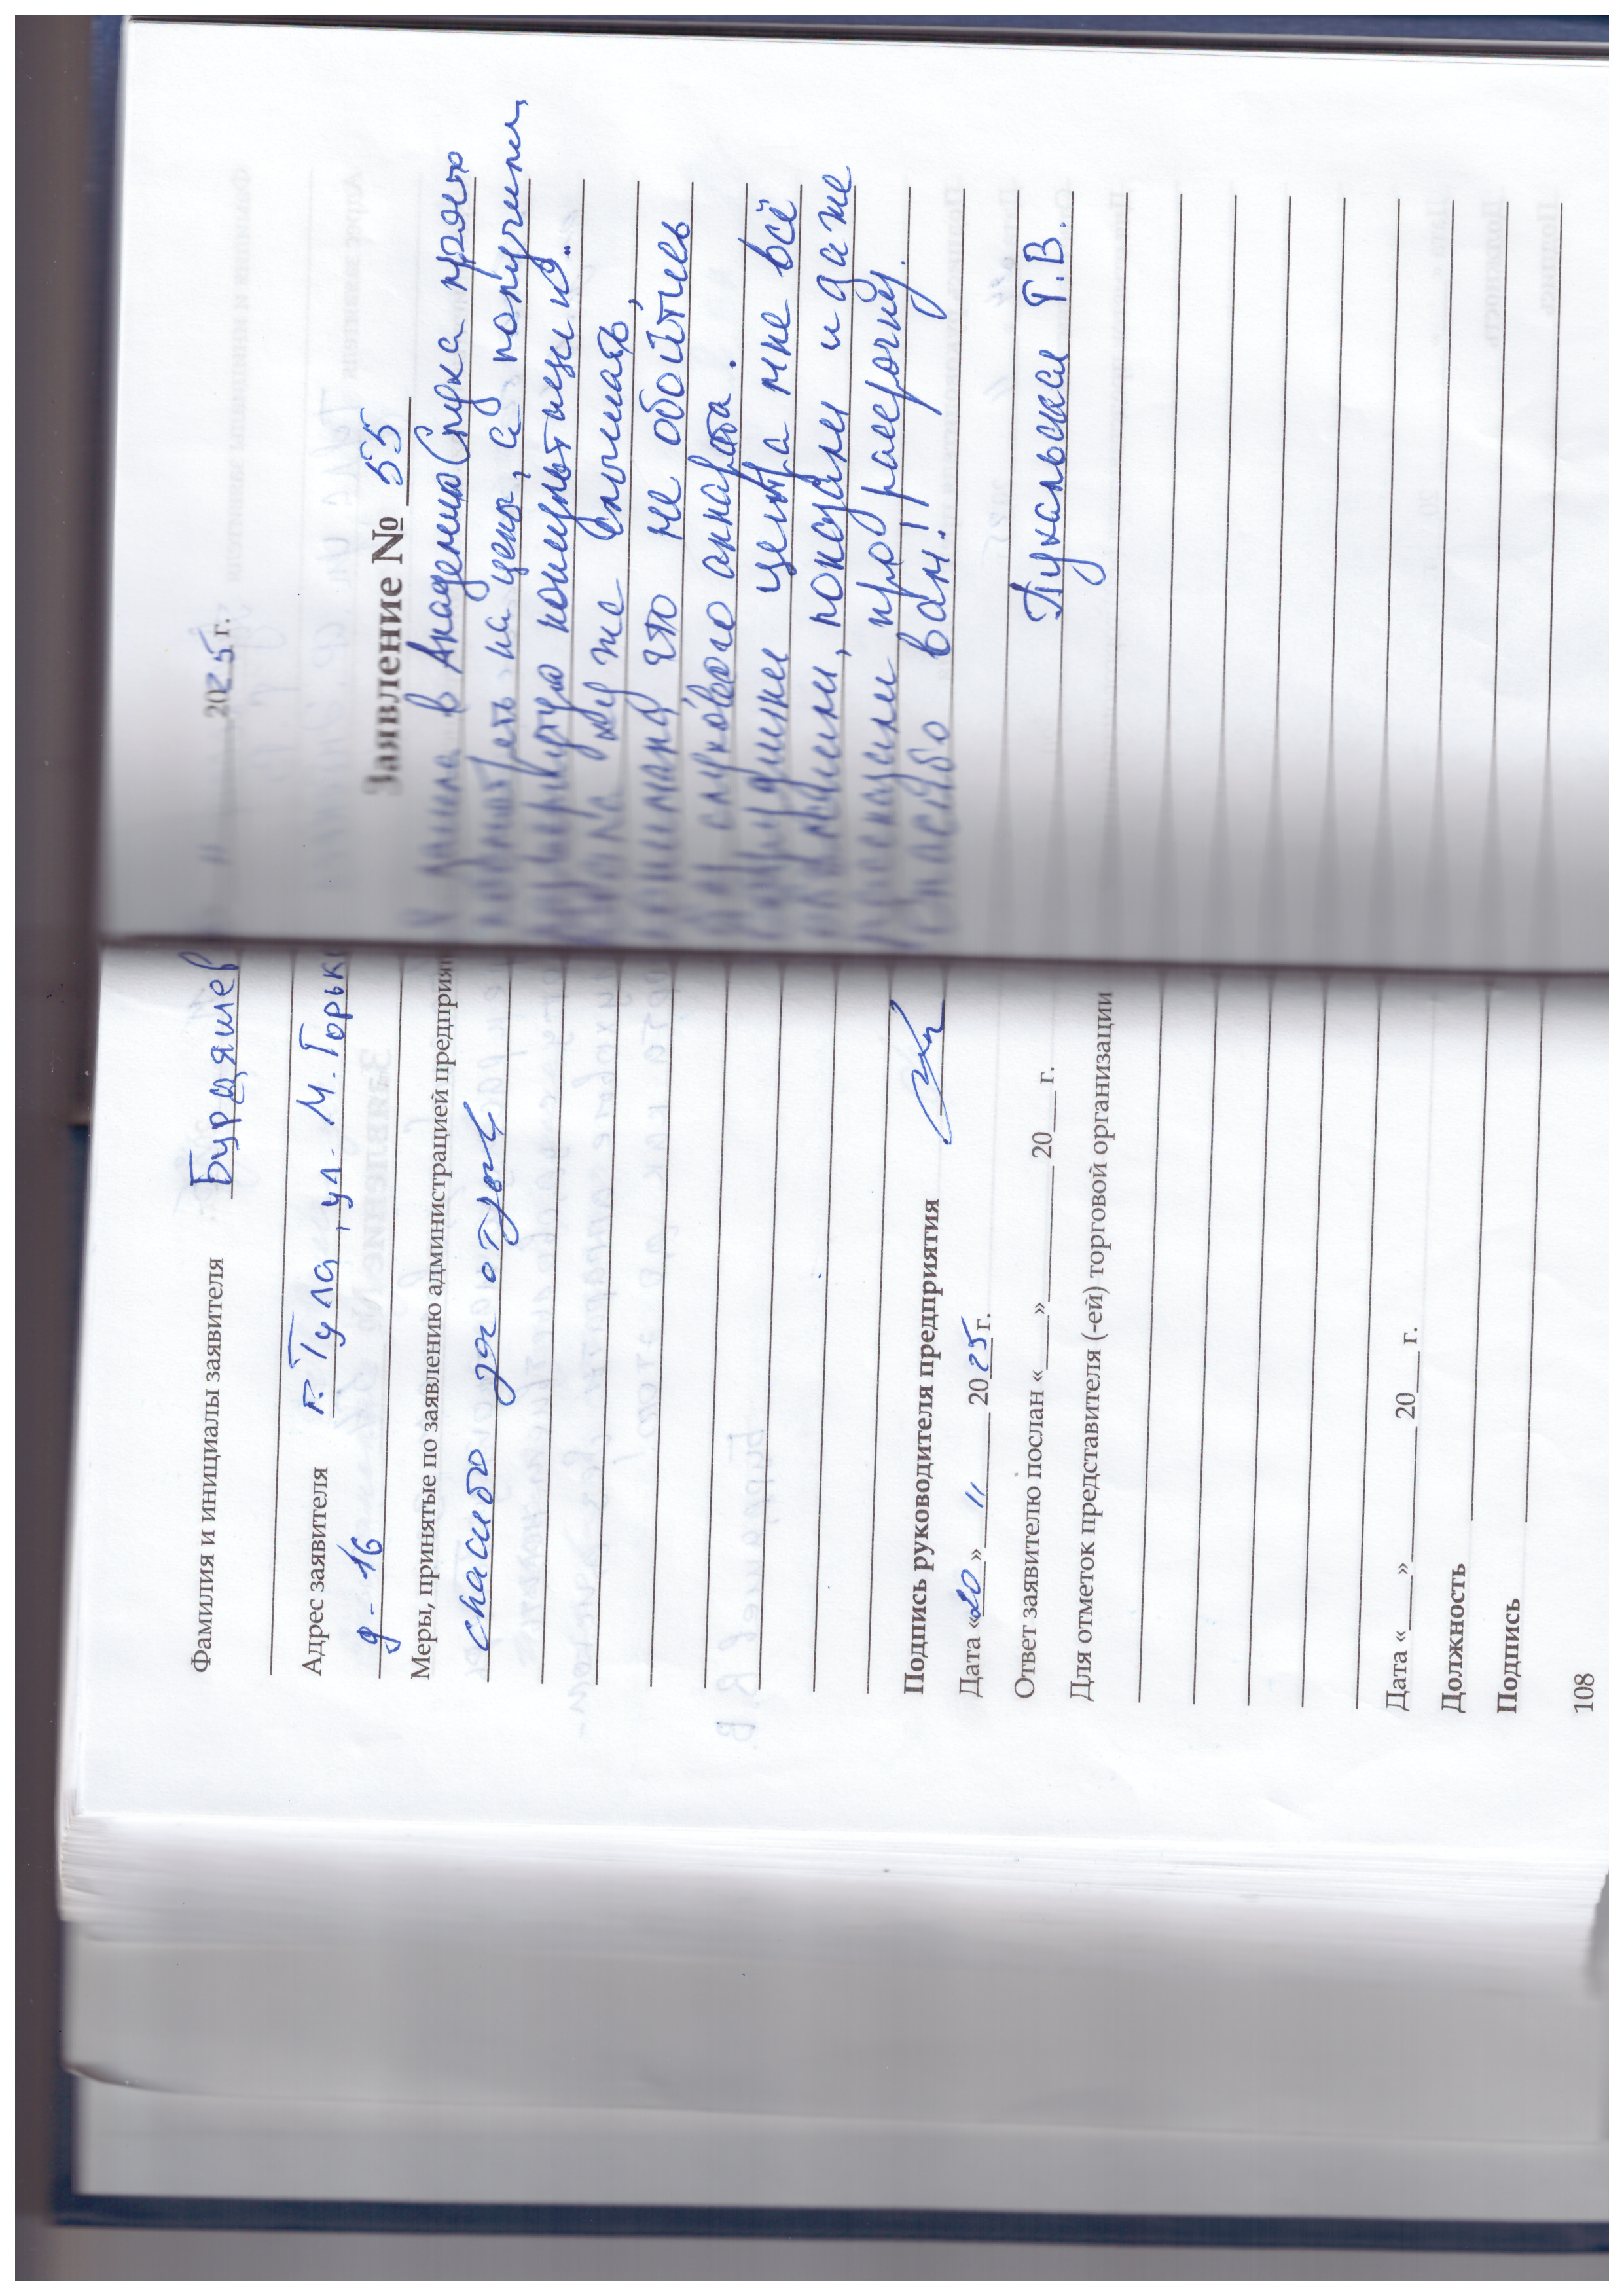 Фамилия и инициалы заявителя Бурдяшев
Адрес заявителя г. Тула, ул. М. Горьк
д-16
Меры, принятые по заявлению администрацией предприят
спасибо за отзыв
Подпись руководителя предприятия
Дата «20» 11 2025 г.
Ответ заявителю послан «___»________ 20___г.
Для отметок представителя (-ей) торговой организации
Дата «___»________ 20___ г.
Должность
Подпись
108
" 2025 г.
Заявление № 55
Я зашла в Академию Слуха просто
посмотреть на цены, а получила
развернутую консультацию..
же слышать,
понимала что не обойтись
без слухового аппарата.
Сотрудники центра мне всё
объяснили, показали и даже
рассказали про рассрочку.
Спасибо вам!!
Пукальская Т.В.